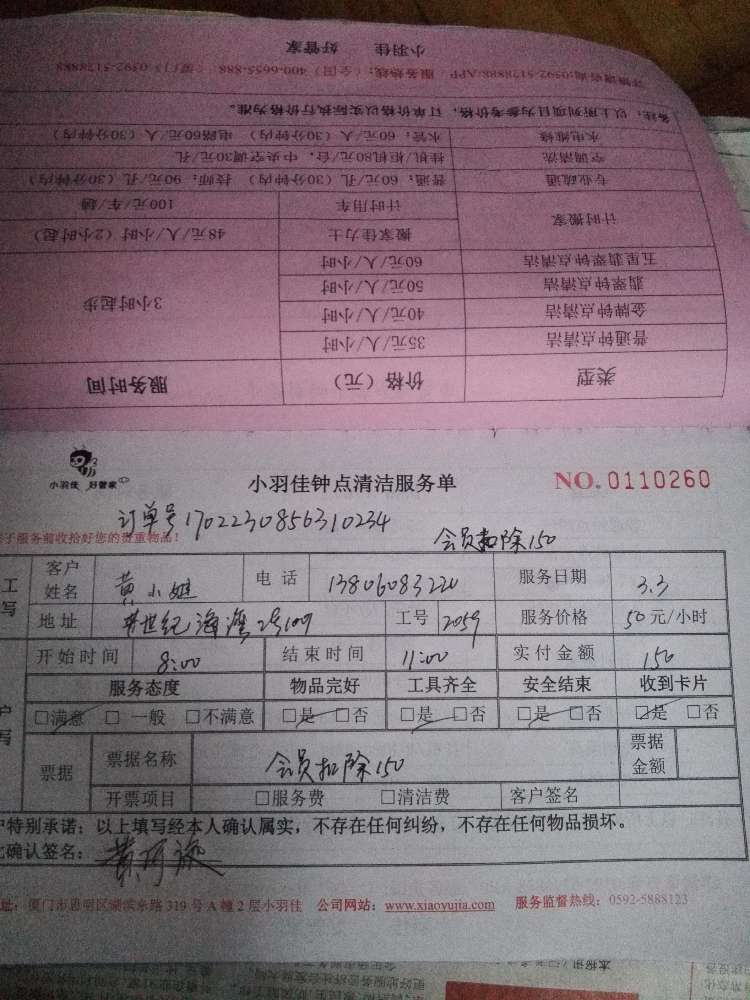 小羽佳 好管家
服务热线：（全国）400-6655-888
备注：以上所列项目为参考价格，订单价格以实际执行价格为准。
水电维修 水管：60元/人（30分钟内） 电路60元/人（30分钟内）
空调清洗 挂机/柜机80元/台，中央空调30元/孔
专业疏通 普通：60元/孔（30分钟内） 技师：90元/孔（30分钟内）
计时搬家 计时用车 100元/车/趟
搬家佳力士 48元/人/小时（2小时起）
五星翡翠钟点清洁 60元/人/小时
翡翠钟点清洁 50元/人/小时 3小时起步
金牌钟点清洁 40元/人/小时
普通钟点清洁 35元/人/小时
类型 价格（元） 服务时间
小羽佳 好管家
小羽佳钟点清洁服务单 NO.0110260
订单号1702230856310234
服务前收拾好您的贵重物品！ 会员扣除150
客户姓名 黄小姐 电话 服务日期 3.3
地址 世纪海湾2号109 工号 2059 服务价格 50元/小时
开始时间 8:00 结束时间 11:00 实付金额 150
服务态度 物品完好 工具齐全 安全结束 收到卡片
□满意 □一般 □不满意 □是 □否 □是 □否 □是 □否 □是 □否
票据 票据名称 会员扣除150 票据金额
开票项目 □服务费 □清洁费 客户签名
户特别承诺：以上填写经本人确认属实，不存在任何纠纷，不存在任何物品损坏。
确认签名：
厦门市思明区湖滨东路319号A幢2层小羽佳 公司网站：www.xiaoyujia.com 服务监督热线：0592-5888123